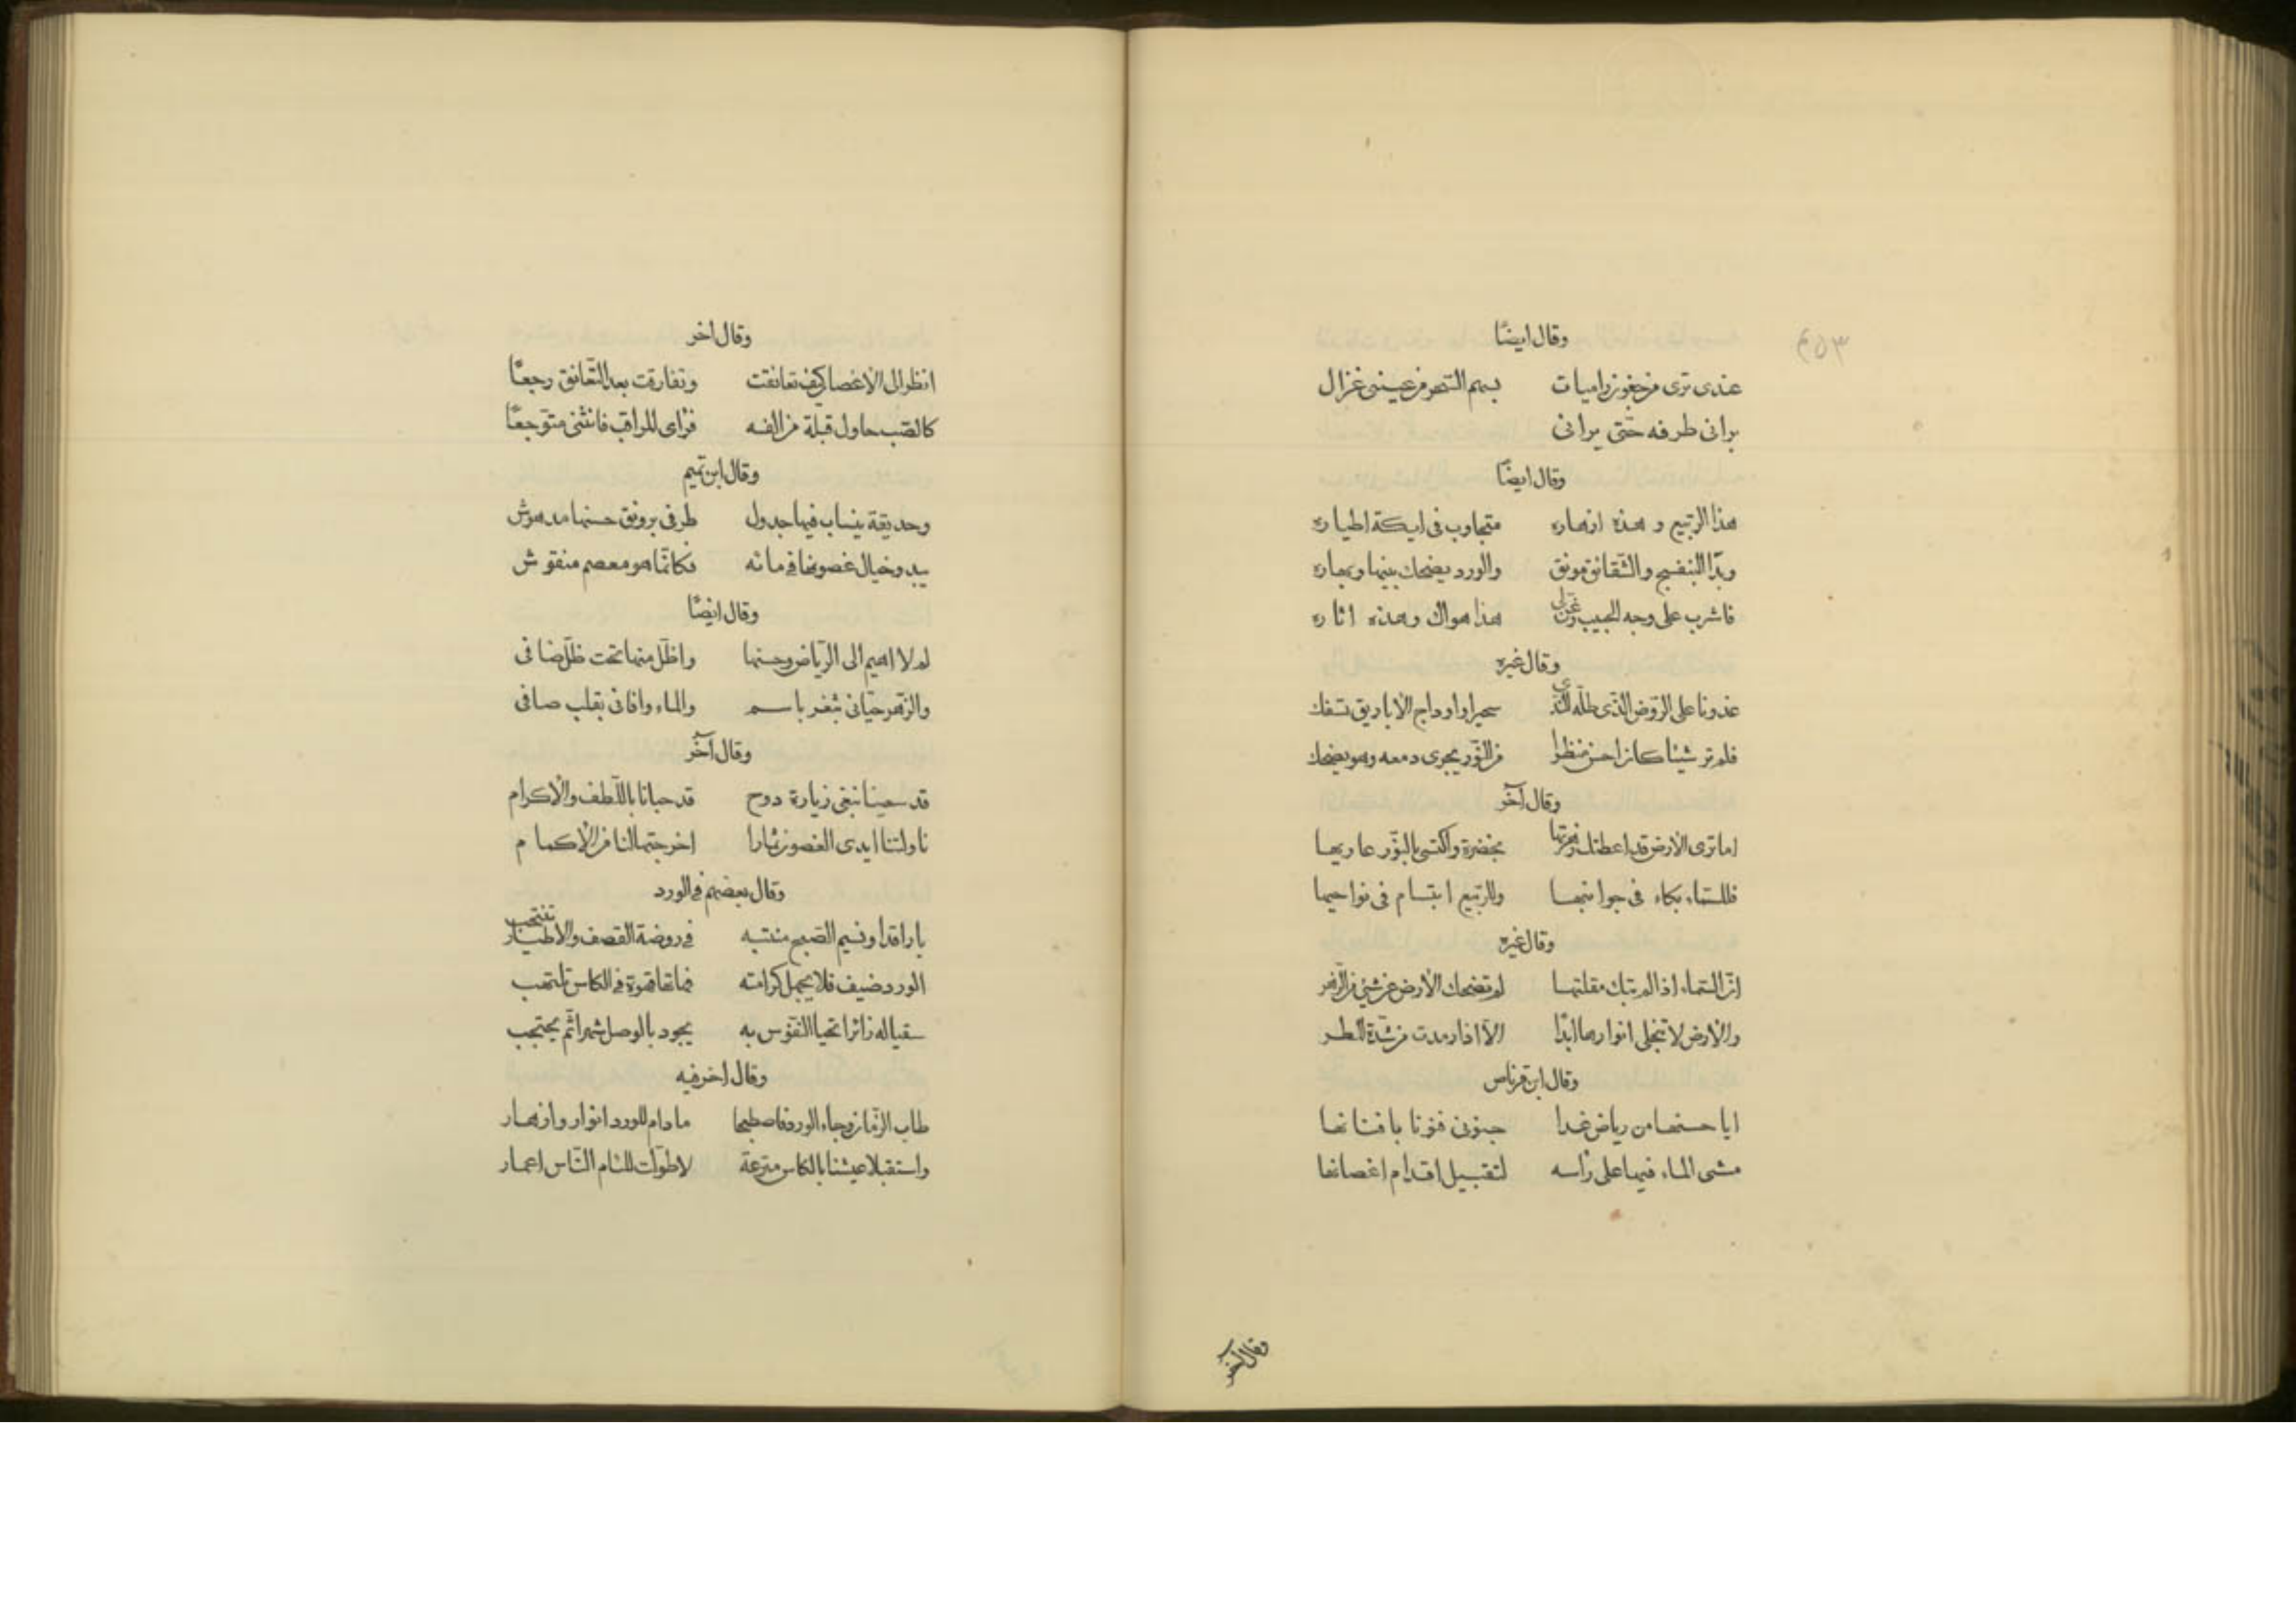 ٢٥٣
وقال ايضًا
عندى ترى من جفون راميات بسهم السحر من عينى غزال
برانى طرفه حتى يرانى
وقال ايضًا
هذا الربيع و هذه ازهاره متجاوب فى ايكة اطياره
وبدا البنفسج والشقائق مونق والورد يضحك بينها وبهاره
فاشرب على وجه الحبيب وغن لى هذا هواك وهذه اثاره
وقال غيره
غدونا على الروض الذى طله الندى سحيرا واوداج الاباريق تسفك
فلم تر شيئا كان احسن منظرا من النور يجرى دمعه وهو يضحك
وقال آخر
اما ترى الارض قد اعطتك زهرتها بخضرة واكتسى بالنور عاريها
فللسماء بكاء فى جوانبها وللربيع ابتسام فى نواحيها
وقال غيره
ان السماء اذا لم تبك مقلتها لم تضحك الارض عن شئ من الزهر
والارض لا تنجلى انوارها ابدا الا اذا رمدت من شدة المطر
وقال ابن قرناص
ايا حسنها من رياض غدا جنونى فنونا بافنانها
مشى الماء فيها على راسه لتقبيل اقدام اغصانها
وقال آخر
وقال اخر
انظر الى الاغصان كيف تعانقت وتفارقت بعد التعانق رجعًا
كالصب حاول قبلة من الفه فراى المراقب فانثنى متوجعًا
وقال ابن تميم
وحديقة ينساب فيها جدول طرفى برونق حسنها مدهوش
يبدو خيال غصونها فى مائه فكانما هو معصم منقوش
وقال ايضًا
لم لا اهيم الى الرياض وحسنها واظل منها تحت ظل ضافى
والزهر حيانى بثغر باسم والماء وافانى بقلب صافى
وقال آخر
قد سعينا نبغى زيارة دوح قد حبانا باللطف والاكرام
ناولتنا ايدى الغصون ثمارا اخرجتها لنا من الاكمام
وقال بعضهم فى الورد
يا راقدا ونسيم الصبح منتبه فى روضة القصف والاطيار تنتحب
الورد ضيف فلا يجهل كرامته فهاتها قهوة فى الكاس تلتهب
سقيا له زائرا تحيا النفوس به يجود بالوصل شهرا ثم يحتجب
وقال اخر فيه
طاب الزمان وجاء الورد فاصطبحا ما دام للورد انوار وازهار
واستقبلا عيشنا بالكاس مترعة لا طولت للئام الناس اعمار